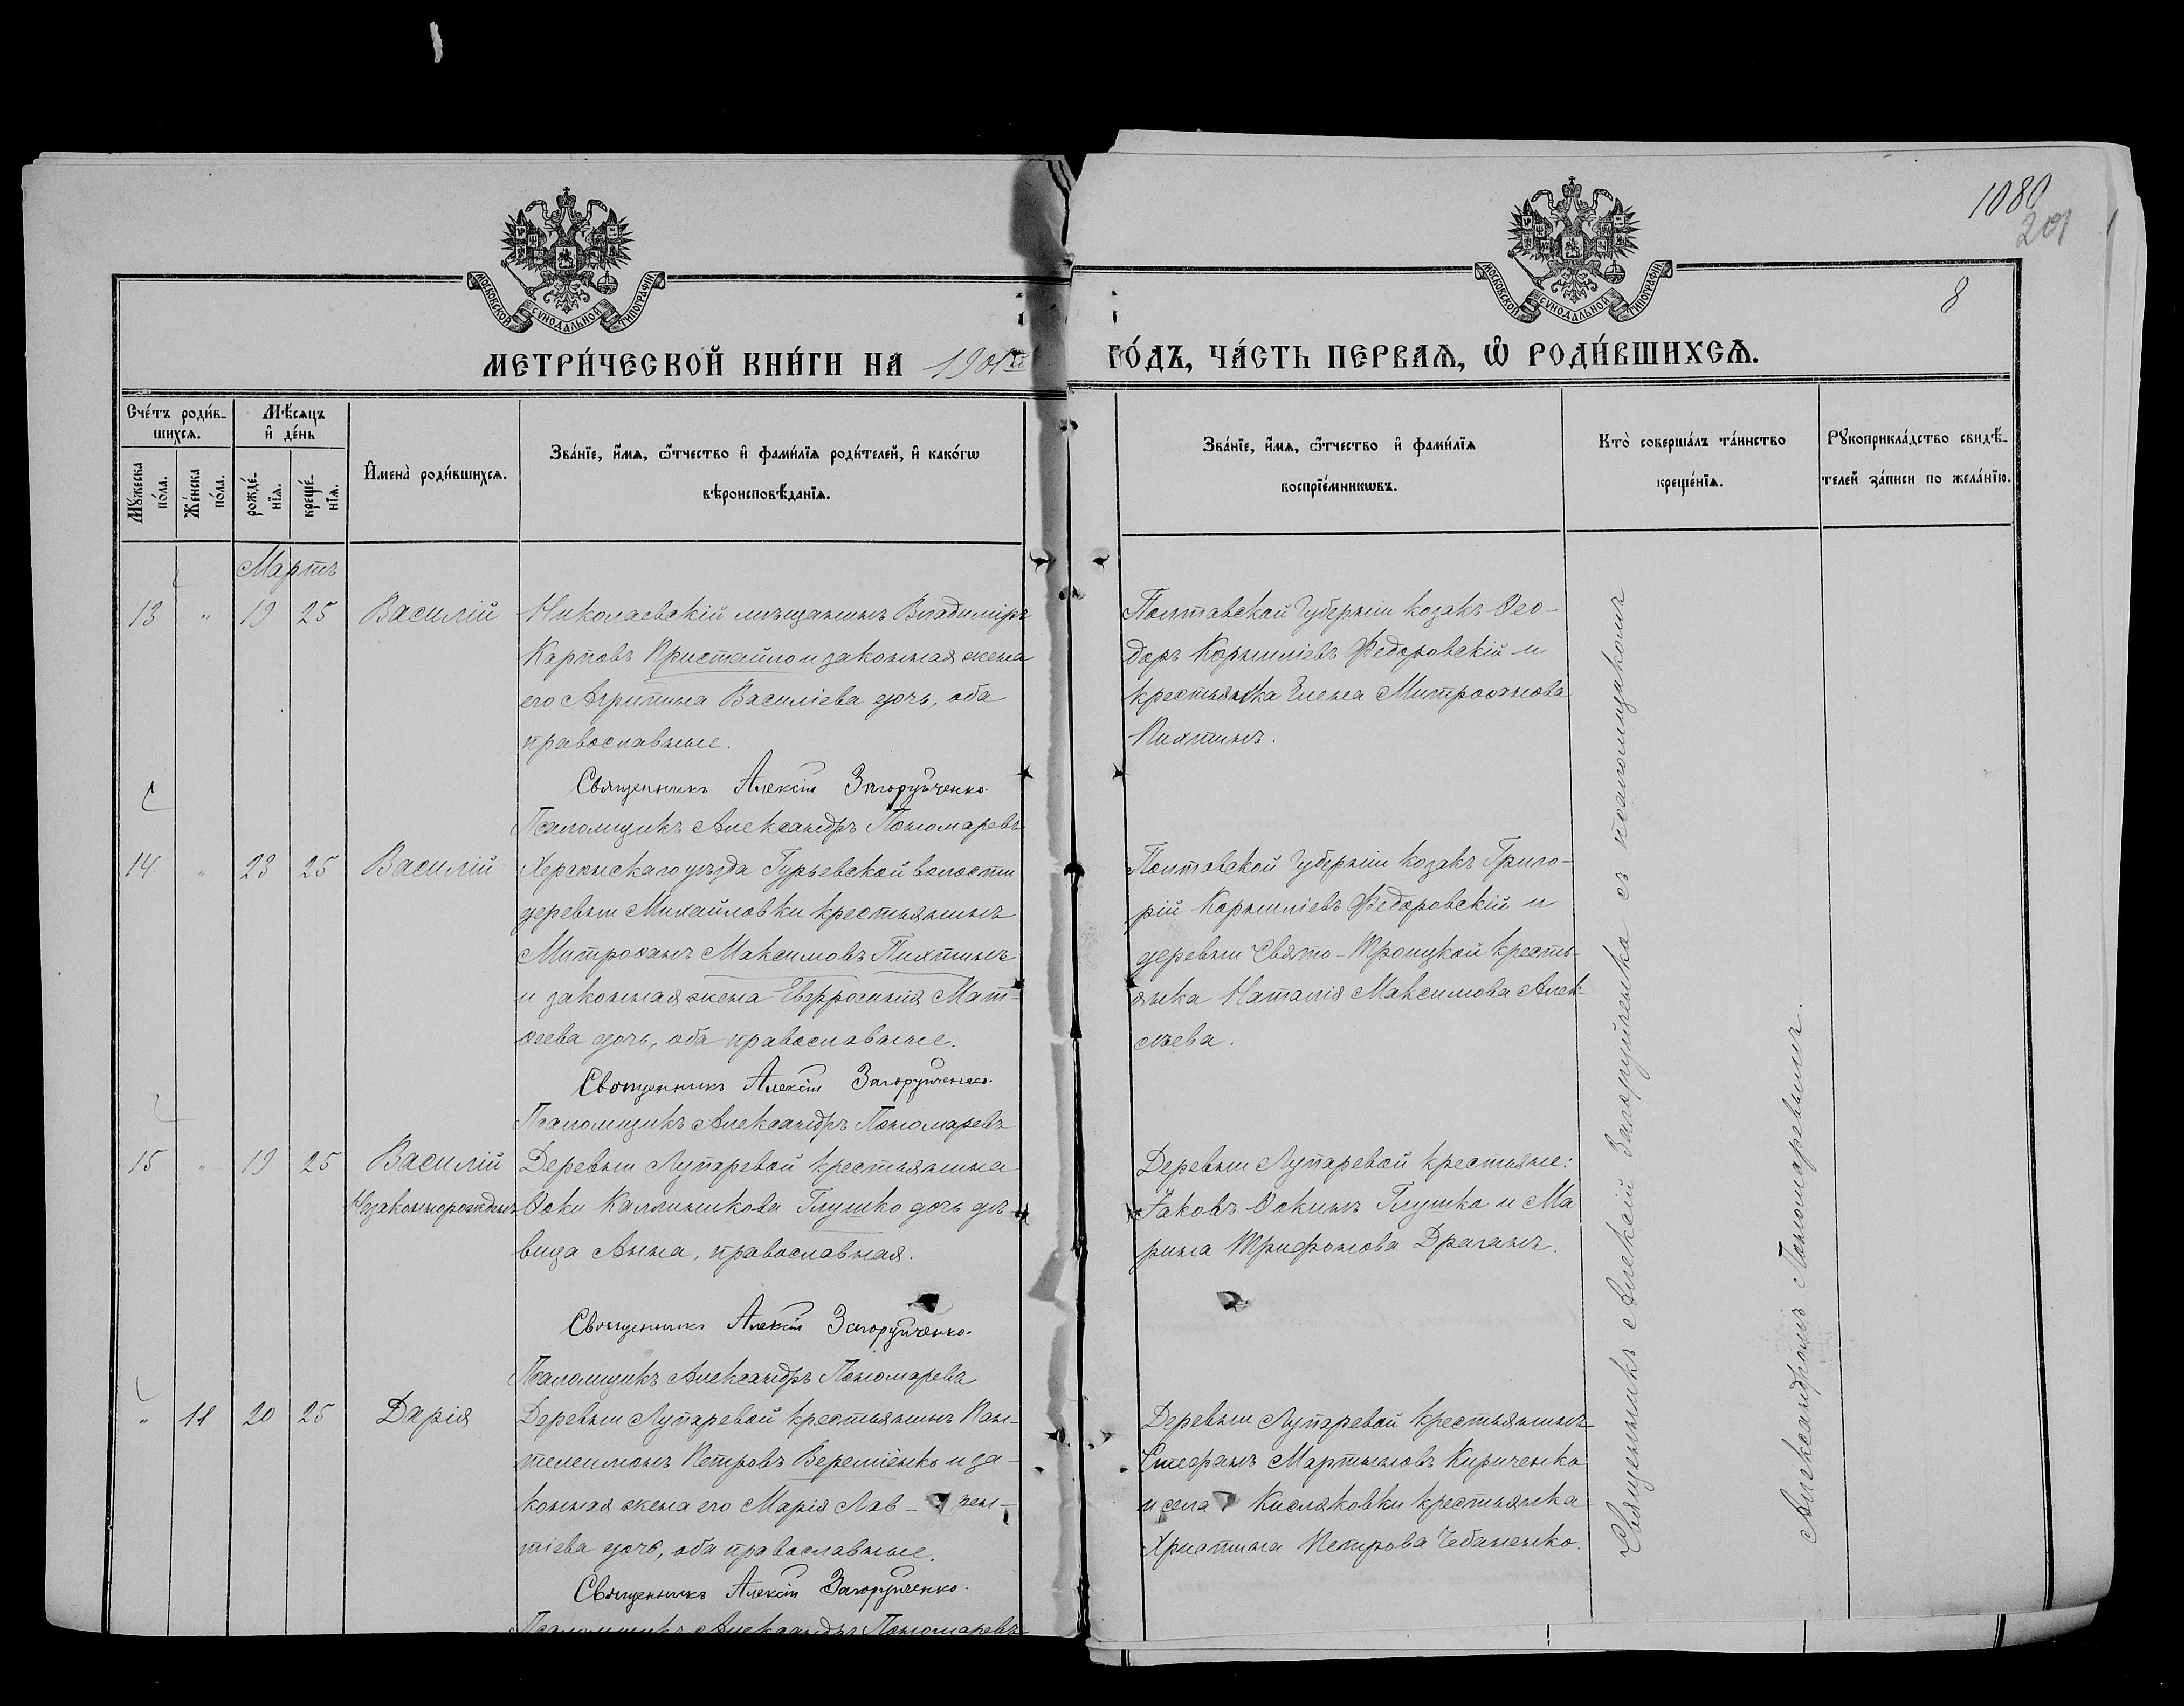 1080
201
8
МОСКОВСКОЙ СѴНОДАЛЬНОЙ ТИПОГРАФІИ
МОСКОВСКОЙ СѴНОДАЛЬНОЙ ТИПОГРАФІИ
МЕТРИ́ЧЕСКОЙ КНИ́ГИ НА 1901й
ГО́ДЪ, ЧА́СТЬ ПЕРВАѦ, Ѡ҆ РОДИ́ВШИХСѦ.
Сче́тъ роди́в-
шихсѧ.
Мꙋ́жеска по́ла.
Же́нска по́ла.
Мѣ́сѧцъ
и҆ де́нь
рожде́-
нїѧ.
креще́-
нїѧ.
И҆мена̀ роди́вшихсѧ.
Зва́нїе, и҆́мѧ, ѻ҆́тчество и҆ фами́лїѧ роди́телей, и҆ како́гѡ
вѣроисповѣ́данїѧ.
Зва́нїе, и҆́мѧ, ѻ҆́тчество и҆ фами́лїѧ
воспрїе́мникѡвъ.
Кто̀ соверша́лъ та́инство
креще́нїѧ.
Рꙋкоприкла́дство свидѣ́-
телей за́писи по жела́нїю.
Мартъ
13 " 19 25 Василій Николаевскій мѣщанинъ Владиміръ
Карповъ Пристайло и законная жена
его Агрипина Василіева дочь, оба
православные.
Священникъ Алексій Загоруйченко.
Псаломщикъ Александръ Пономаревъ
Полтавской Губерніи козакъ Ѳео-
доръ Корниліевъ Федоровскій и
крестьянка Елена Митроѳанова
Пихтинъ.
14 " 23 25 Василій Херсонскаго уѣзда Гурьевской волости
деревни Михайловки крестьянинъ
Митроѳанъ Максимовъ Пихтинъ
и законная жена Евфросинія Мат-
ѳеева дочь, оба православные.
Священникъ Алексій Загоруйченко.
Псаломщикъ Александръ Пономаревъ
Полтавской Губерніи козакъ Григо-
рій Корниліевъ Федоровскій и
деревни Свято-Троицкой кресть-
янка Наталія Максимова Алек-
сѣева.
15 " 19 25 Василій Деревни Лупаревой крестьянина
Незаконнорожденъ Ѳоки Каллиникова Глушко дочь дѣ-
вица Анна, православная.
Священникъ Алексій Загоруйченко.
Псаломщикъ Александръ Пономаревъ
Деревни Лупаревой крестьяне:
Іаковъ Ѳокинъ Глушко и Ма
рина Трифонова Драганъ.
" 11 20 25 Дарія Деревни Лупаревой крестьянинъ Пан-
телеимонъ Петровъ Вереміенко и за-
конная жена его Марія Лав-рен-
тіева дочь, оба православные.
Священникъ Алексій Загоруйченко.
Псаломщикъ Александръ Пономаревъ
Деревни Лупаревой крестьянинъ
Стефанъ Мартыновъ Кириченко
и села Кисляковки крестьянка
Христина Петрова Чебаненко.
Священникъ Алексій Загоруйченко съ псаломщикомъ
Александромъ Пономаревымъ.